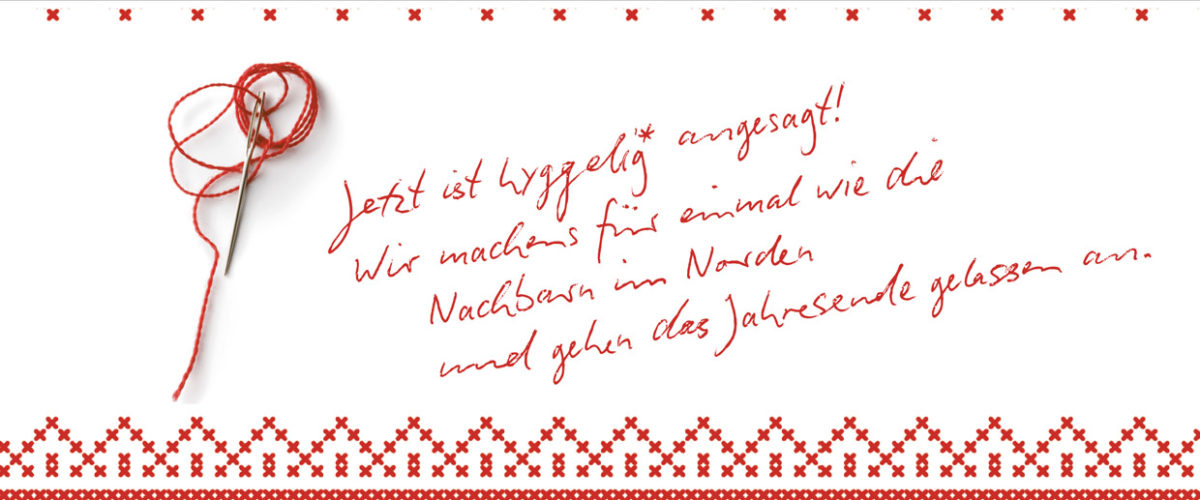 Jetzt ist hyggelig* angesagt!
Wir machens für einmal wie die
Nachbarn im Norden
und gehen das Jahresende gelassen an.